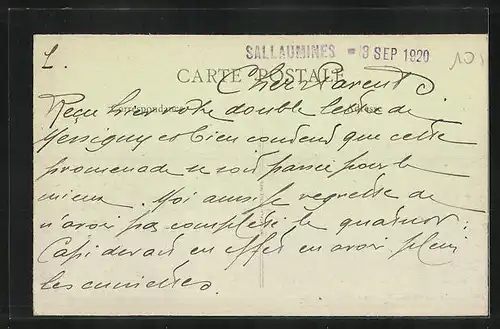 L. SALLAUMINES - 3 SEP 1920 10
CARTE POSTALE
Chers Parents
Correspondance Adresse
Reçu hier votre double lettre de
Messigny et bien content que cette
promenade se soit passée pour le
mieux. Moi aussi je regrette de
n'avoir pas complété le quatuor :
Capi devait en effet en avoir plein
les